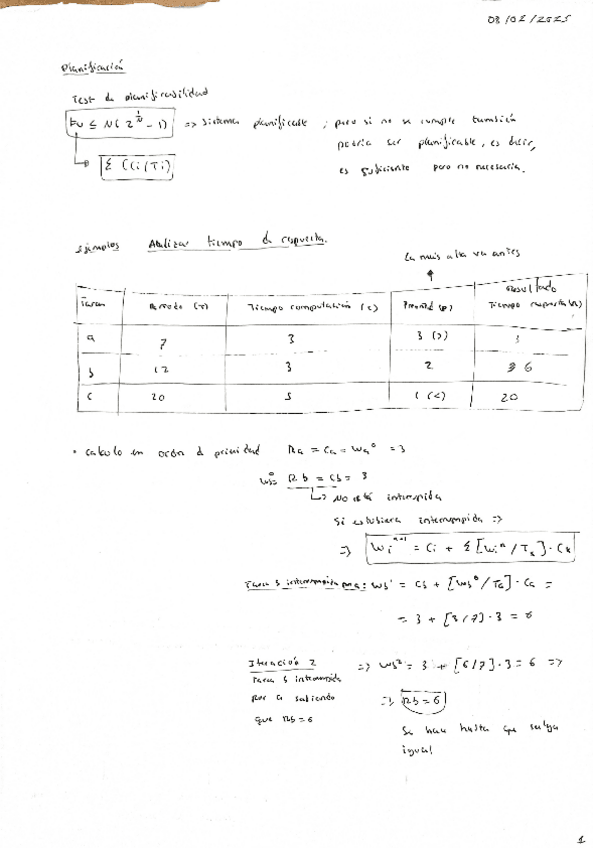 03/02/2025
Planificación
Test de planificabilidad
Fu ≤ N(2^(1/N) - 1) => sistema planificable, pero si no se cumple también
podría ser planificable, es decir,
es suficiente pero no necesaria.
Σ (Ci/Ti)
ejemplos Analizar tiempo de respuesta.
La más alta va antes
Tarea Periodo (T) Tiempo computación (C) Prioridad (P) Resultado Tiempo respuesta (R)
a 7 3 3 (>) 3
b 12 3 2 6
c 20 5 1 (<) 20
• calculo en orden d prioridad Ra = Ca = Wa⁰ = 3
Wb⁰ = Rb = Cb = 3
↳ No está interrumpida
Si estubiera interrumpida =>
=> Wi^(n+1) = Ci + Σ[Wi^n/Tk]·Ck
Tarea b interrumpida por a: Wb¹ = Cb + [Wb⁰/Ta]·Ca =
= 3 + [3/7]·3 = 6
Iteración 2 => Wb² = 3 + [6/7]·3 = 6 =>
Tarea b interrumpida
por a sabiendo => Rb = 6
que Rb = 6
Se hace hasta que salga
igual
1